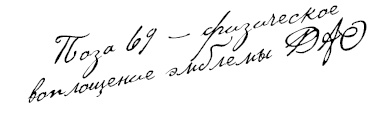 Поза 69 – физическое
воплощение эмблемы ДАО